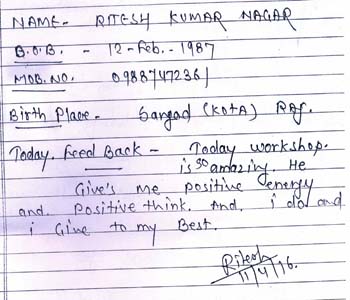 NAME- RITESH KUMAR NAGAR
D.O.B. - 12-Feb.-1987
MOB. NO. 09887472361
Birth Place- Sangod (KOTA) Raj.
Today. Feed Back - Today workshop.
is so amazing. He
Give's me positive energy
and positive think. And. i do and
i Give to my Best.
Ritesh
11/4/16.